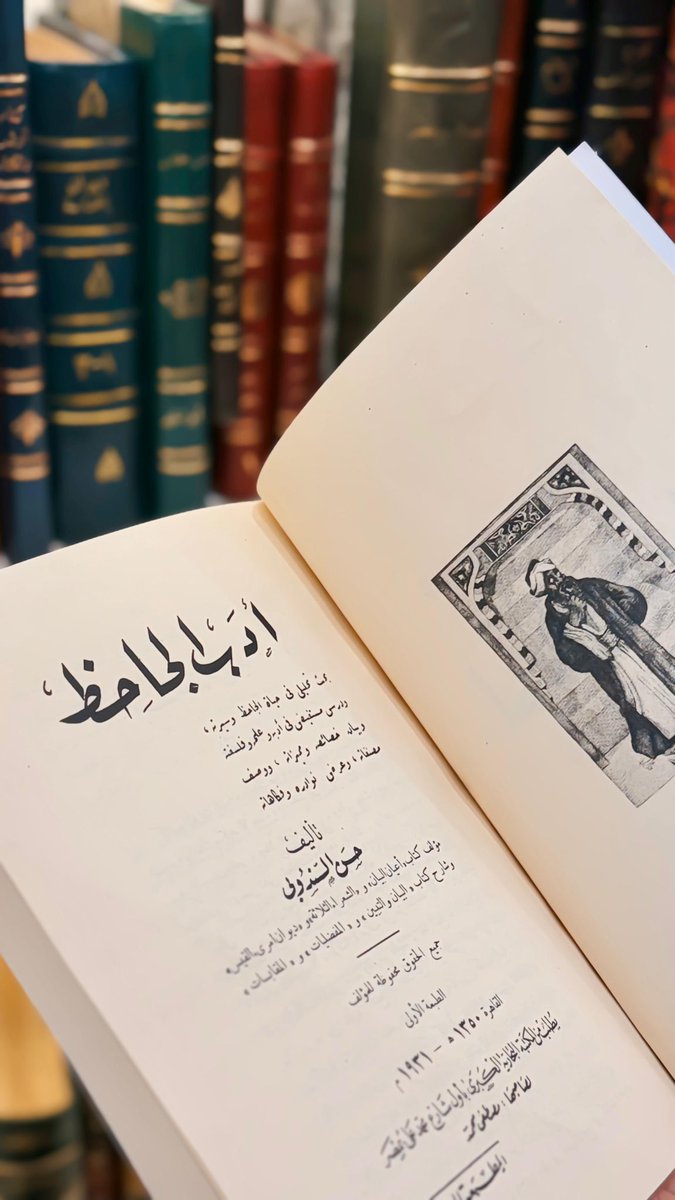 أدَبُ الجَاحِظ
بحث تحليلى فى حياة الجاحظ وسيرته،
ودرس مستفيض فى أدبه وعلمه وفلسفته
وبيان خصائصه ومميزاته، ووصف
مصنفاته، وعرض نوادره وفكاهاته
تأليف
حسن السندوبي
مؤلف كتاب «أعيان البيان» و«الشعراء الثلاثة» و«ديوان امرئ القيس»
وشارح كتاب «البيان والتبيين» و«المفضليات» و«المقابسات»
جميع الحقوق محفوظة للمؤلف
الطبعة الأولى
القاهرة ١٣٥٠ هـ - ١٩٣١ م
يطلب من المكتبة التجارية الكبرى بأول شارع محمد على بمصر
لصاحبها: مصطفى محمد
المطبعة